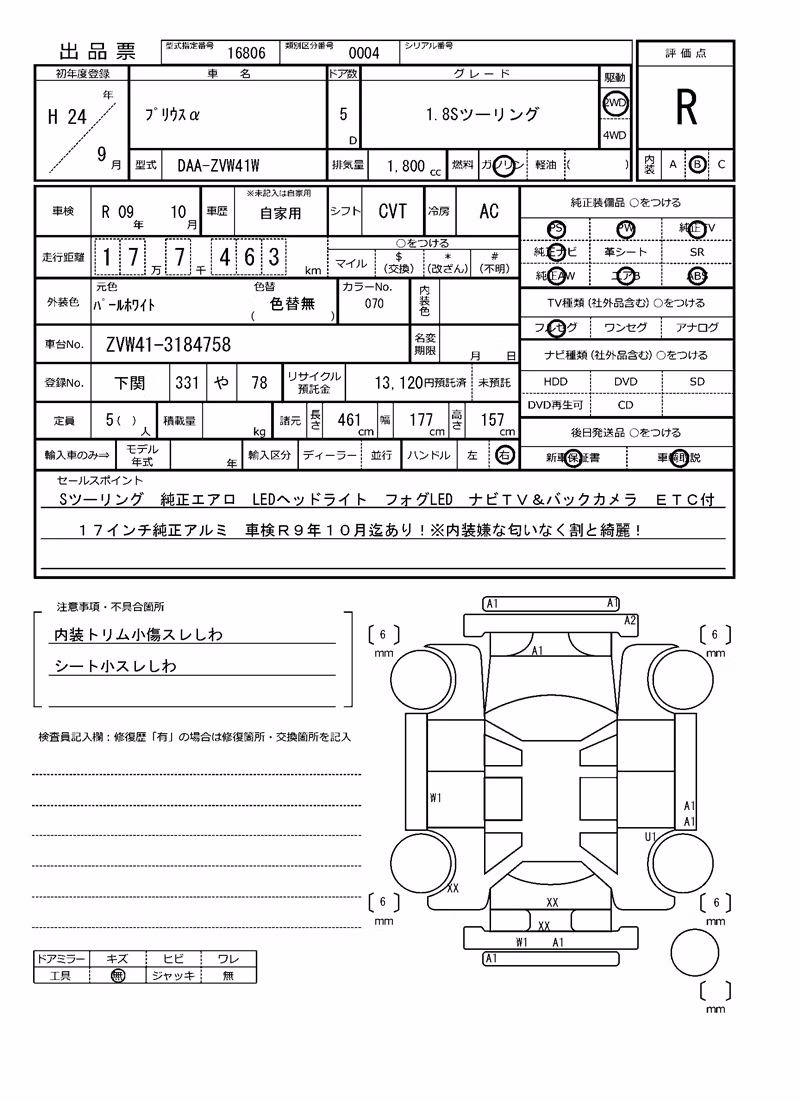 出品票
型式指定番号 16806 類別区分番号 0004 シリアル番号
初年度登録 車 名 ドア数 グレード 駆動 評価点
H 24 年 9月 ﾌﾟﾘｳｽα 5 D 1.8Sツーリング 2WD 4WD R
型式 DAA-ZVW41W 排気量 1,800 cc 燃料 ガソリン 軽油 ( ) 内装 A B C
車検 R 09 年 10 月 車歴 ※未記入は自家用 自家用 シフト CVT 冷房 AC 純正装備品 ○をつける
PS PW 純正TV
走行距離 17万 7千 463 km ○をつける マイル $(交換) *(改ざん) #(不明) 純正ナビ 革シート SR
純正AW エアB ABS
外装色 元色 ﾊﾟｰﾙﾎﾜｲﾄ 色替 ( 色替無 ) カラーNo. 070 内装色 TV種類(社外品含む) ○をつける
フルセグ ワンセグ アナログ
車台No. ZVW41-3184758 名変期限 月 日 ナビ種類(社外品含む) ○をつける
登録No. 下関 331 や 78 リサイクル預託金 13,120円預託済 未預託 HDD DVD SD
DVD再生可 CD
定員 5( )人 積載量 kg 諸元 長さ 461cm 幅 177cm 高さ 157cm 後日発送品 ○をつける
輸入車のみ⇒ モデル年式 年 輸入区分 ディーラー 並行 ハンドル 左 右 新車保証書 車輌取説
セールスポイント
Sツーリング 純正エアロ LEDヘッドライト フォグLED ナビＴＶ＆バックカメラ ＥＴＣ付
１７インチ純正アルミ 車検Ｒ９年１０月迄あり！※内装嫌な匂いなく割と綺麗！
注意事項・不具合箇所
内装トリム小傷スレしわ
シート小スレしわ
検査員記入欄：修復歴「有」の場合は修復箇所・交換箇所を記入
A1 A1
A2
6 mm A1 6 mm
W1 A1
A1
U1
XX
6 mm XX 6 mm
XX
W1 A1
A1
mm
ドアミラー キズ ヒビ ワレ
工具 無 ジャッキ 無